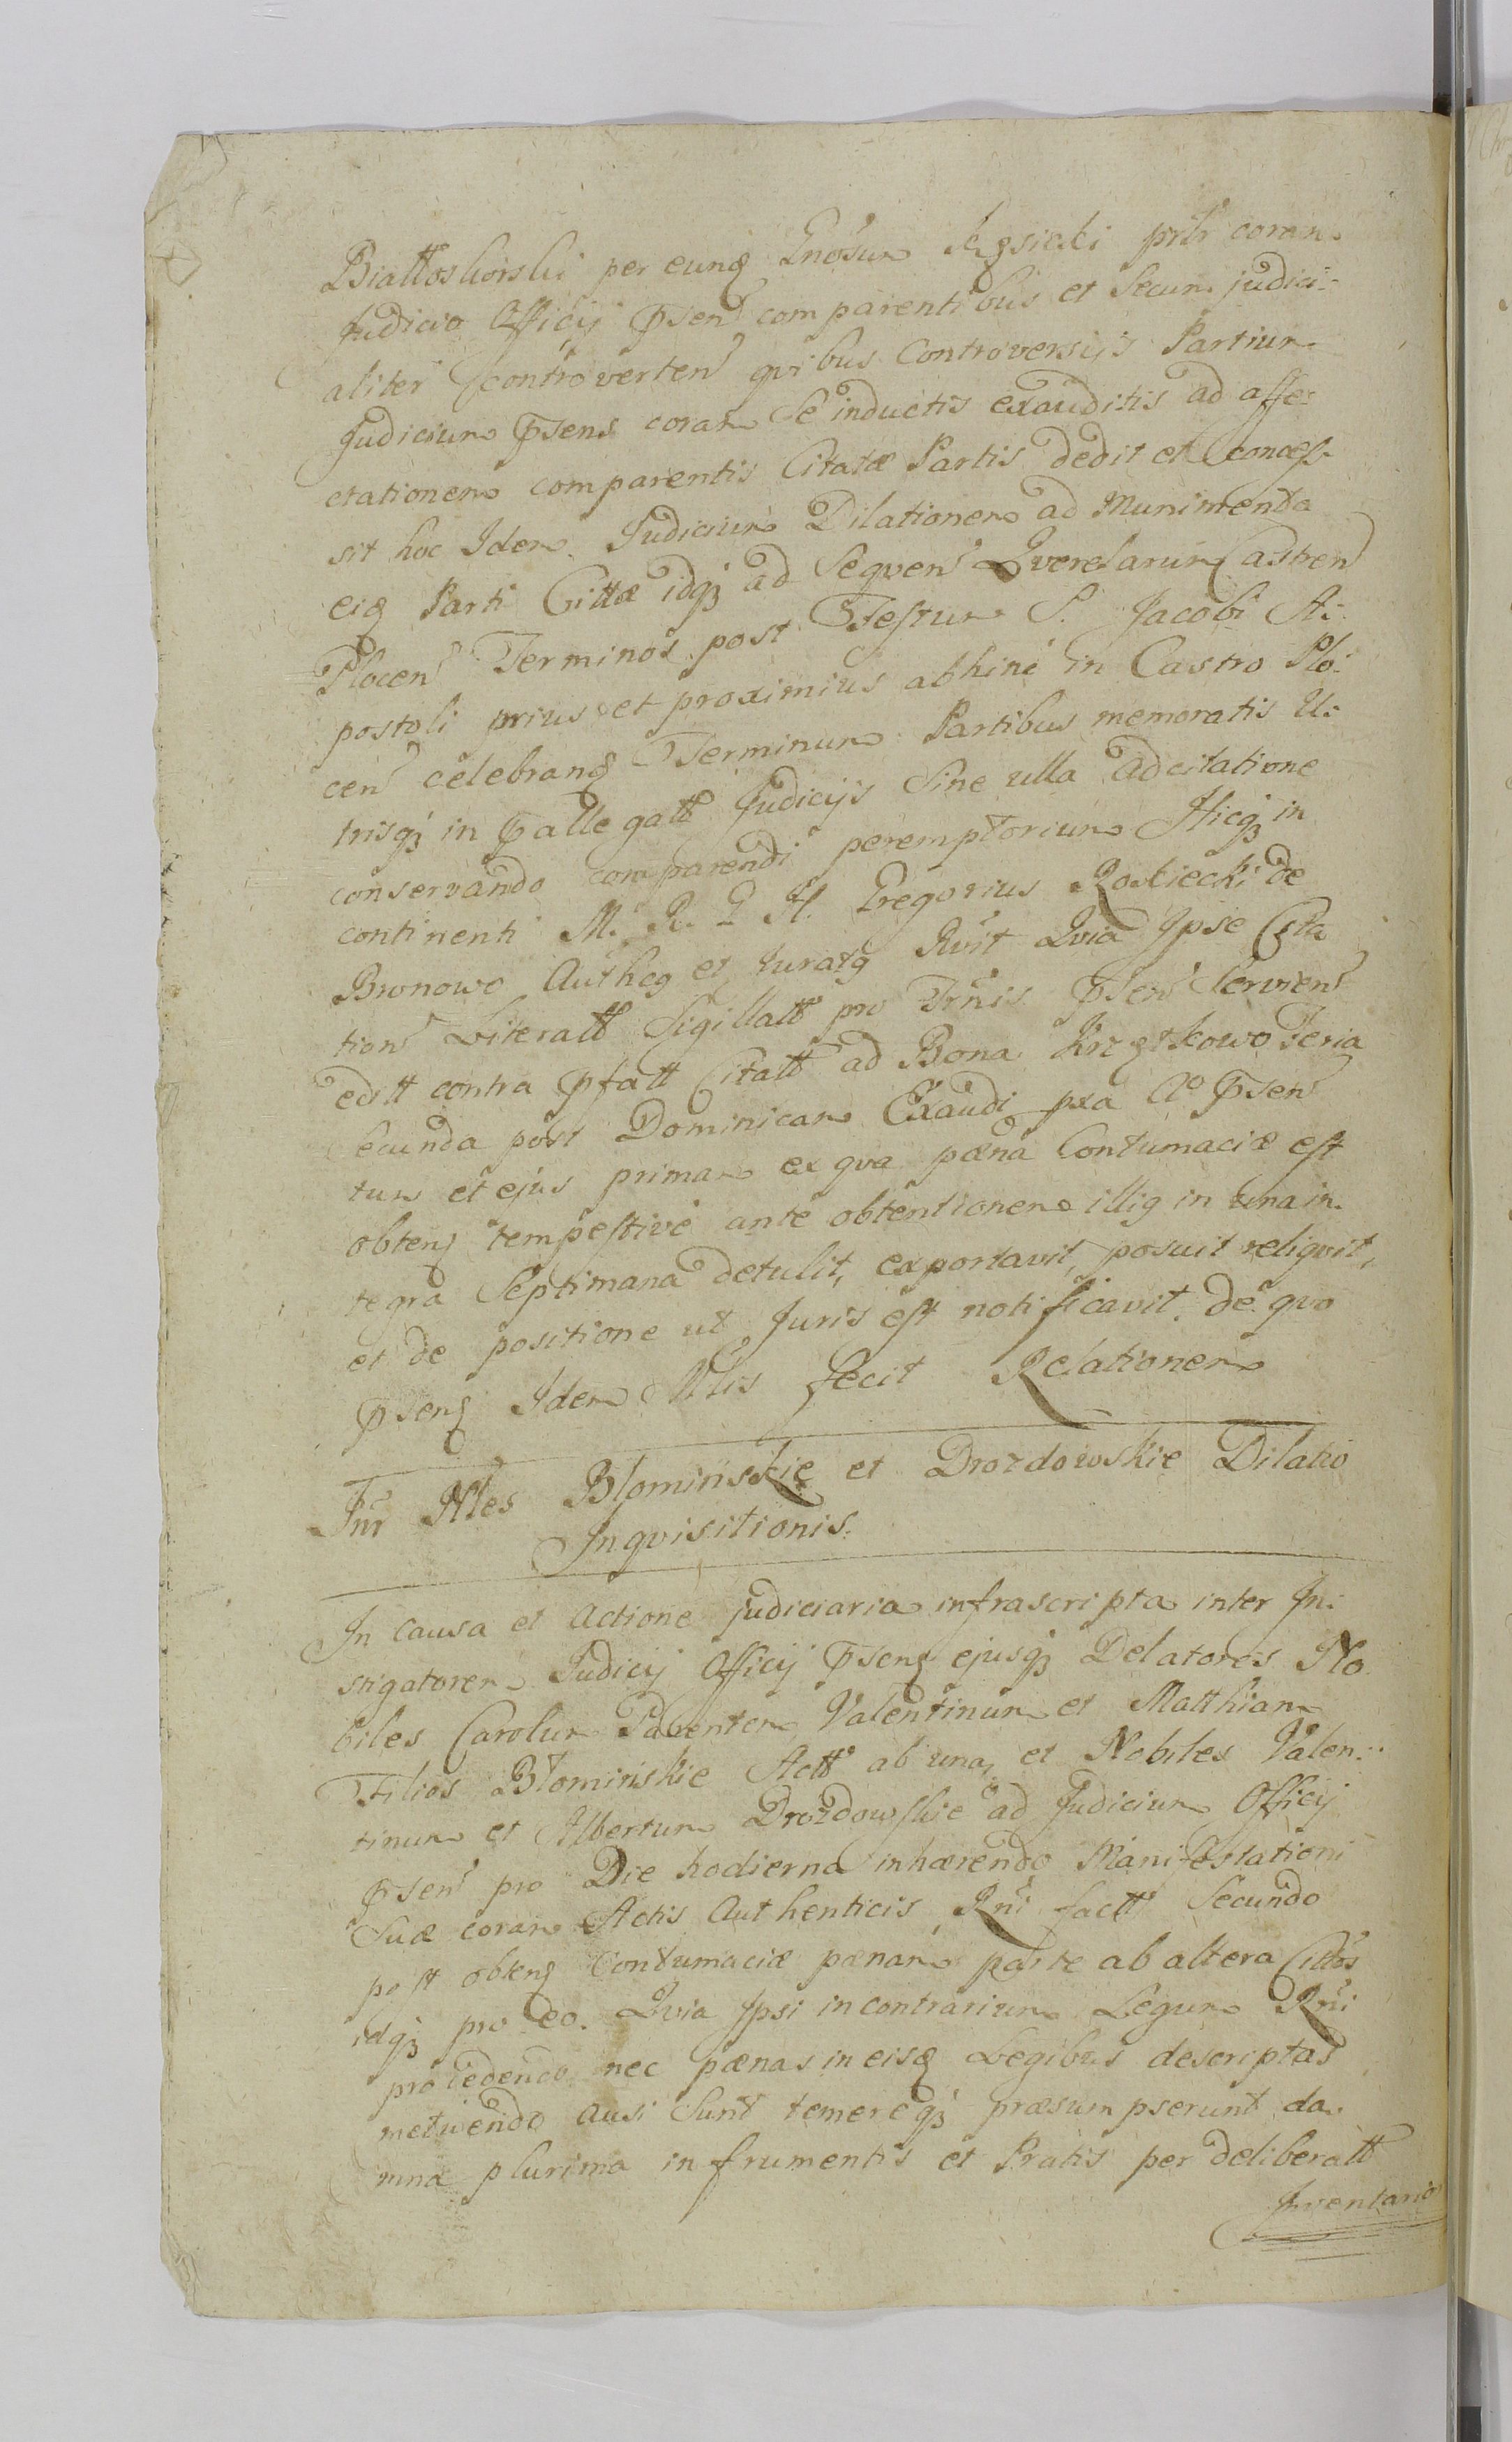 Białłoskorski per eund Gnosum Kęsicki prlr coram
Judicio Officij Psen comparentibus et Secum judici:
aliter controverten qvibus Controversijs Partium
Judicium Psens coram Se inductis exauditis ad affe:
ctationem comparentis Citatæ Partis dedit et conces:
sit hoc Idem Judicium Dilationem ad Munimenta
eid Parti Cittæ idq3 ad Seqven Qverelarum Castren
Plocen Terminos post Festum S. Jacobi A:
postoli prius et proximius abhinc in Castro Plo:
cen celebrand Terminum Partibus memoratis U:
trisq3 in Pallegatt Judicijs Sine ulla adcitatione
conservando comparendi peremptorium Hicq3 in
continenti M. R. G. H. Gregorius Rościecki de
Bronowo Autheg et Juratg Rvit Qvia Ipse Cita
tion Literatt Sigillatt pro Trnis Psen Servien
editt contra Pfatt Citatt ad Bona Krzętkowo Feria
Secunda post Dominicam Exaudi pxa Ao Psen
tum et ejus primam ex qva pæna Contumaciæ est
obten tempestive ante obtentionem illig in una in:
tegra Septimana detulit, exportavit, posuit reliqvit,
et de positione ut Juris est notificavit, de qvo
Psen Idem Mlis fecit Relationem
Inr Nles Błomińskie et Drozdowskie Dilatio
Inqvisitionis.
In causa et Actione judiciaria infrascripta inter In:
stigatorem Judicij Officij Psen ejusq3 Delatores No
biles Carolum Parentem Valentinum et Matthiam
Filios Błomińskie Actt ab una, et Nobiles Valen:
tinum et Albertum Drozdowskie ad Judicium Officij
Psen pro Die hodierna inhærendo Manifestationi
Suæ coram Actis Authenticis Rni factt Secundo
post obten Contumaciæ pænam parte ab altera Cittos
idq3 pro eo. Qvia Ipsi in contrarium Legum Rni
procedendo nec pænas in eisd Legibus descriptas
metuendo ausi Sunt temereq3 præsumpserunt da:
mna plurima in frumentis et Pratis per deliberatt
Inventario